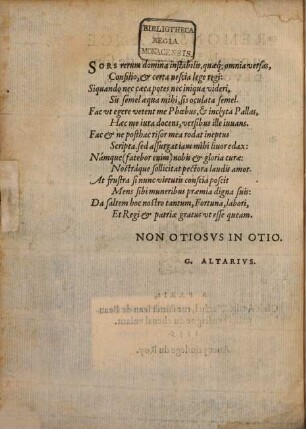 BIBLIOTHECA
REGIA
MONACENSIS.
SORS rerum domina instabilis, quæq; omnia versas,
Consilio, & certa nescia lege regi:
Siquando nec cæca potes nec iniqua videri,
Sis semel æqua mihi, sis oculata semel.
Fac vt egere vetent me Phœbus, & inclyta Pallas,
Hæc me iuta docens, versibus ille iuuans.
Fac & ne posthac risor mea rodat ineptus
Scripta. sed assurgat iam mihi liuor edax:
Námque (fatebor enim) nobis & gloria curæ:
Nostráque sollicitat pectora laudis amor.
At frustra si nunc virtutis conscia poscit
Mens sibi muneribus præmia digna suis:
Da saltem hoc nostro tantum, Fortuna, labori,
Et Regi & patriæ gratus vt esse queam.
NON OTIOSVS IN OTIO.
G. ALTARIVS.